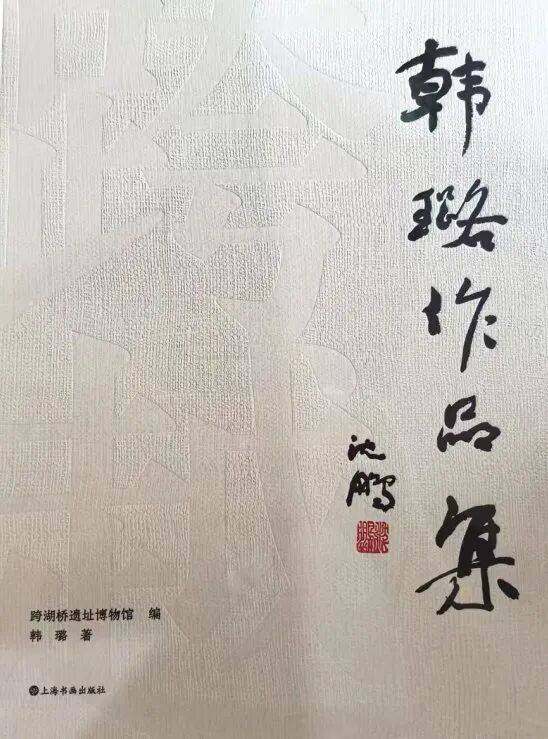 韩璐作品集
沈鹏
跨湖桥遗址博物馆 编
韩 璐 著
上海书画出版社